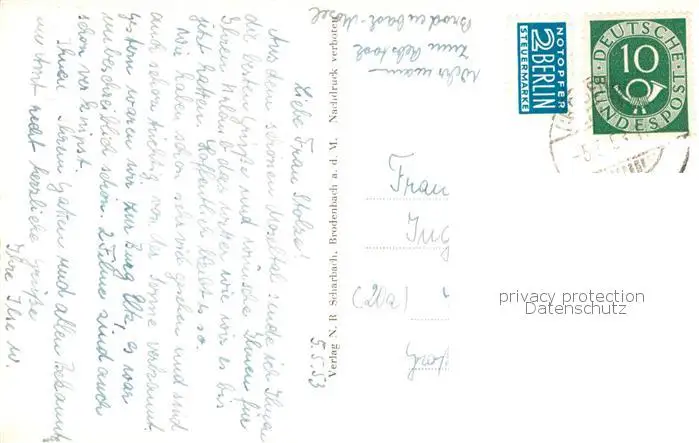 5.5.53
Liebe Frau Stolze!
Aus dem schönen Moseltal sende ich Ihnen
die besten Grüße und wünsche Ihnen für
Ihren das Wetter wie wir es bis
jetzt hatten. Hoffentlich bleibt es so.
Wir haben schon sehr viel gesehen und sind
auch schon tüchtig von der Sonne verbrannt.
Gestern waren wir zur Burg Eltz, es war
unbeschreiblich schön. 2 Filme sind auch
schon verknipst.
Ihnen, Ihrem Gatten und allen Bekannten
recht herzliche Grüße
Ihre Ilse W.
Verlag N. R. Scharbach, Brodenbach a. d. M. Nachdruck verboten
Zum Rebstock
Brodenbach-Mosel
NOTOPFER
2 BERLIN
STEUERMARKE
DEUTSCHE
10
BUNDESPOST
Frau
Ing
(20a)
privacy protection
Datenschutz